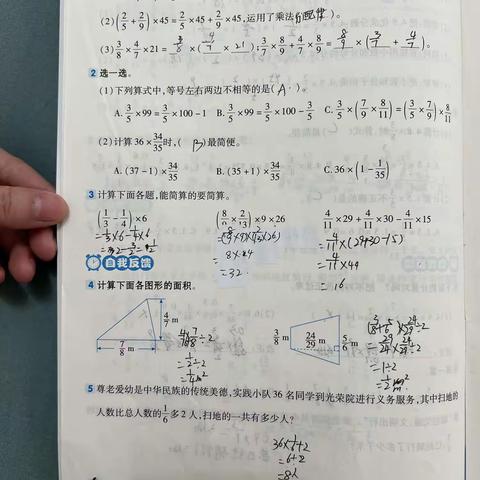 (2) (2/5+2/9)×45=2/5×45+2/9×45,运用了乘法(分配律)。
(3) 3/8×4/7×21=3/8×(4/7×21);3/7×8/9+4/7×8/9=8/9×(3/7+4/7)。
2 选一选。
(1)下列算式中,等号左右两边不相等的是(A)。
A. 3/5×99=3/5×100-1 B. 3/5×99=3/5×100-3/5 C. 3/5×(7/9×8/11)=(3/5×7/9)×8/11
(2)计算36×34/35时,(B)最简便。
A. (37-1)×34/35 B. (35+1)×34/35 C. 36×(1-1/35)
3 计算下面各题,能简算的要简算。
(1/3-1/4)×6 (8/9×2/13)×9×26 4/11×29+4/11×30-4/11×15
=1/3×6-1/4×6 =4/11×(29+30-15)
8×4 =4/11×44
=32 =16
自我反馈
4 计算下面各图形的面积。
4/7 m
7/8 m
4/7×7/8÷2
=1/2÷2
=1/4m²
3/8 m 24/29 m 5/6 m
(3/8+5/6)×24/29÷2
=29/24×24/29÷2
=1÷2
5 尊老爱幼是中华民族的传统美德,实践小队36名同学到光荣院进行义务服务,其中扫地的
人数比总人数的1/6多2人,扫地的一共有多少人?
36×1/6+2
=6+2
=8人